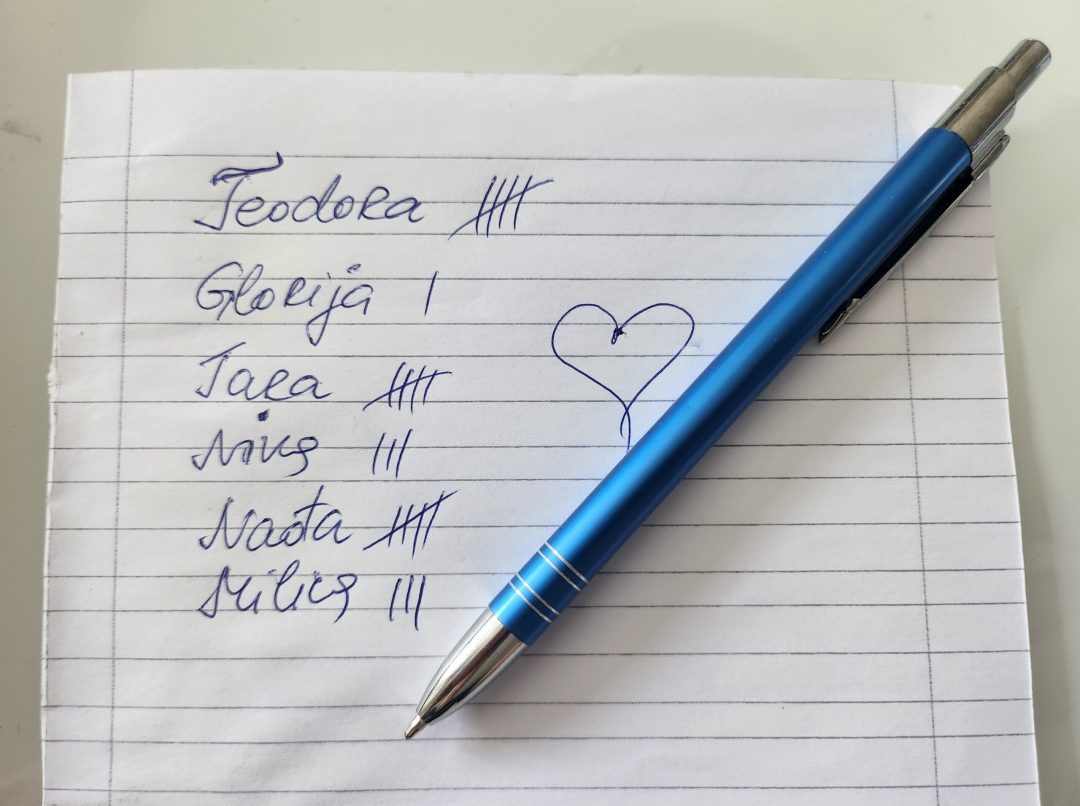 Teodora 𝍸
Glorija |
Tara 𝍸
Nika |||
Nađa 𝍸
Milica |||